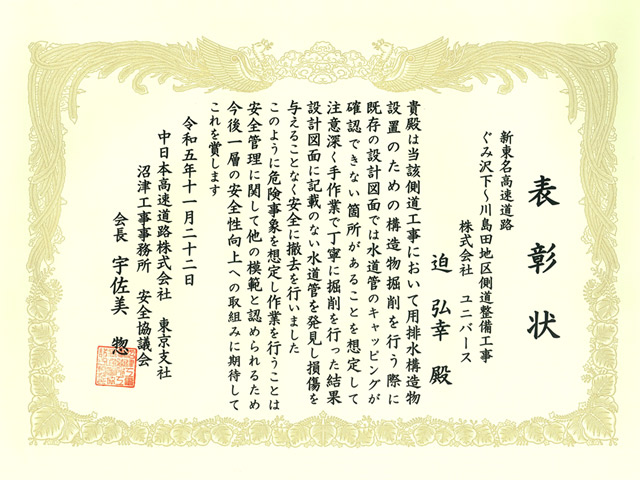 表彰状
新東名高速道路
ぐみ沢下〜川島田地区側道整備工事
株式会社 ユニバース
迫 弘幸 殿
貴殿は当該側道工事において用排水構造物
設置のための構造物掘削を行う際に
既存の設計図面では水道管のキャッピングが
確認できない箇所があることを想定して
注意深く手作業で丁寧に掘削を行った結果
設計図面に記載のない水道管を発見し損傷を
与えることなく安全に撤去を行いました
このように危険事象を想定し作業を行うことは
安全管理に関して他の模範と認められるため
今後一層の安全性向上への取組みに期待して
これを賞します
令和五年十一月二十二日
中日本高速道路株式会社 東京支社
沼津工事事務所 安全協議会
会長 宇佐美 惣